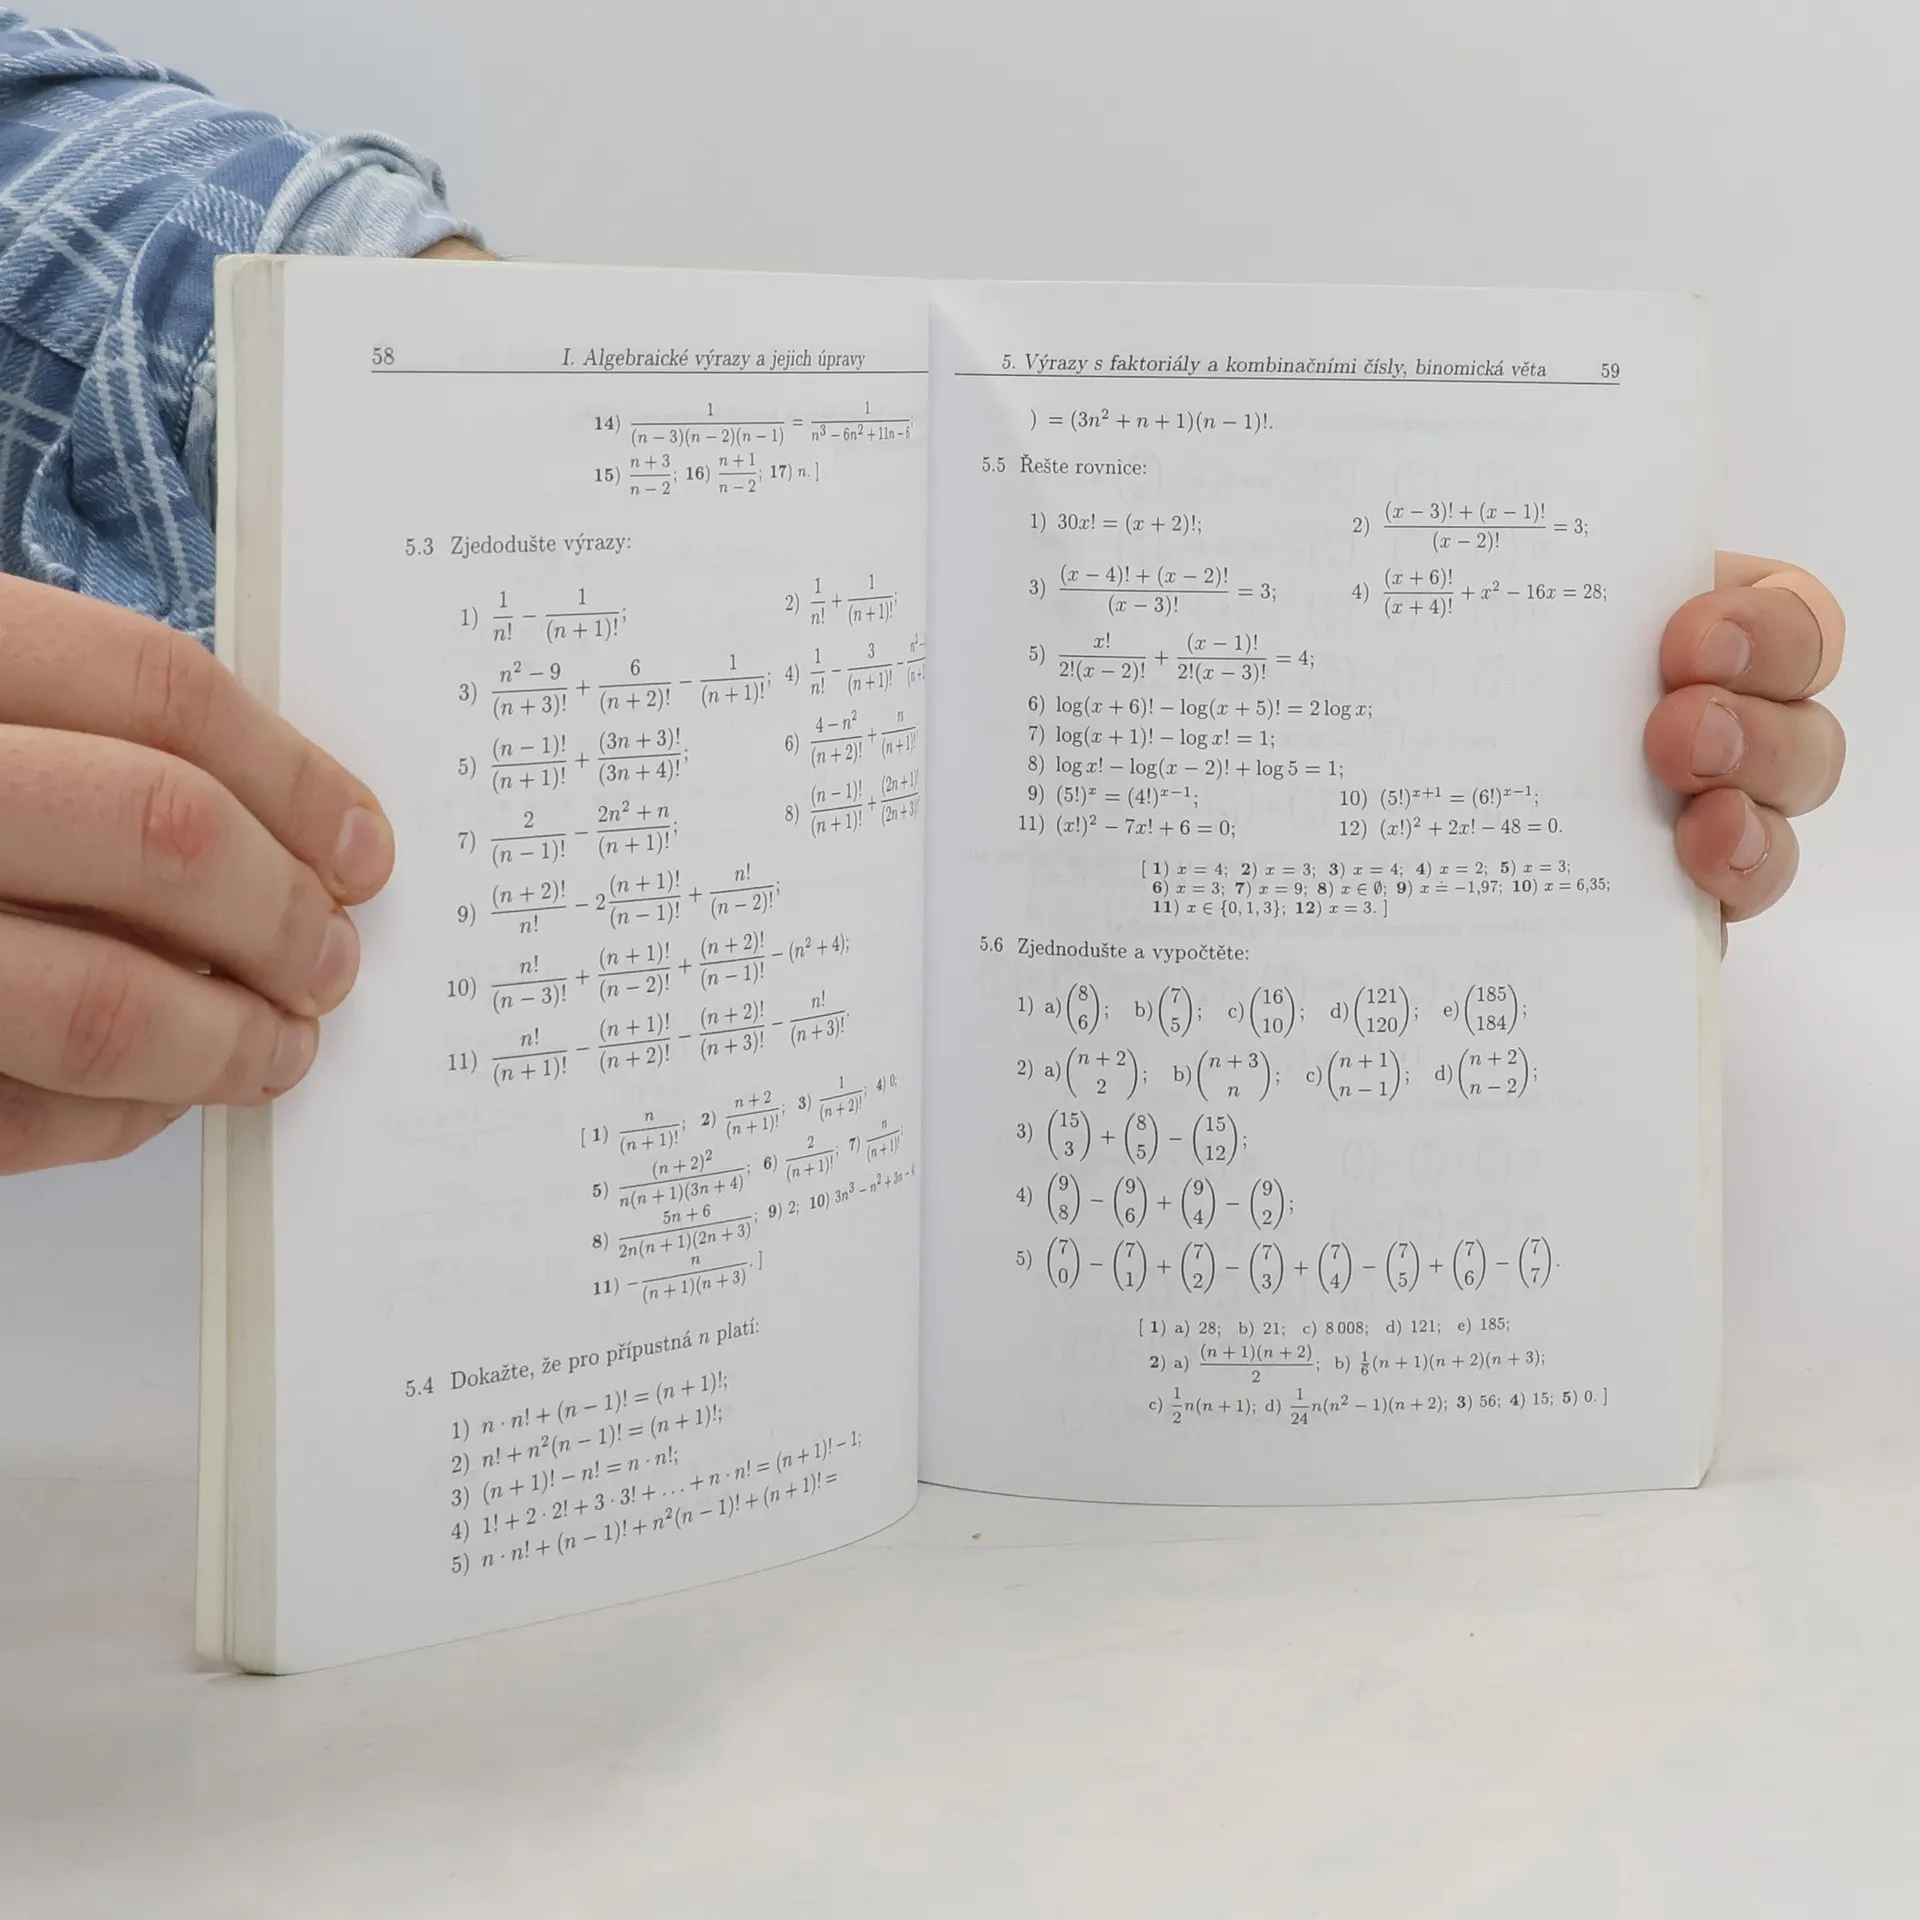 58 I. Algebraické výrazy a jejich úpravy
14) 1/((n − 3)(n − 2)(n − 1)) = 1/(n³ − 6n² + 11n − 6);
15) (n + 3)/(n − 2); 16) (n + 1)/(n − 2); 17) n. ]
5.3 Zjedodušte výrazy:
1) 1/n! − 1/(n + 1)!; 2) 1/n! + 1/(n + 1)!;
3) (n² − 9)/(n + 3)! + 6/(n + 2)! − 1/(n + 1)!; 4) 1/n! − 3/(n + 1)! −
5) (n − 1)!/(n + 1)! + (3n + 3)!/(3n + 4)!; 6) (4 − n²)/(n + 2)! + n/(n + 1)!
7) 2/(n − 1)! − (2n² + n)/(n + 1)!; 8) (n − 1)!/(n + 1)! + (2n + 1)!/(2n + 3)!
9) (n + 2)!/n! − 2 (n + 1)!/(n − 1)! + n!/(n − 2)!;
10) n!/(n − 3)! + (n + 1)!/(n − 2)! + (n + 2)!/(n − 1)! − (n² + 4);
11) n!/(n + 1)! − (n + 1)!/(n + 2)! − (n + 2)!/(n + 3)! − n!/(n + 3)!.
[ 1) n/(n + 1)!; 2) (n + 2)/(n + 1)!; 3) 1/(n + 2)!; 4) 0;
5) (n + 2)²/(n(n + 1)(3n + 4)); 6) 2/(n + 1)!; 7) n/(n + 1)!;
8) (5n + 6)/(2n(n + 1)(2n + 3)); 9) 2; 10) 3n³ − n² + 3n −
11) − n/((n + 1)(n + 3)). ]
5.4 Dokažte, že pro přípustná n platí:
1) n · n! + (n − 1)! = (n + 1)!;
2) n! + n²(n − 1)! = (n + 1)!;
3) (n + 1)! − n! = n · n!;
4) 1! + 2 · 2! + 3 · 3! + … + n · n! = (n + 1)! − 1;
5) n · n! + (n − 1)! + n²(n − 1)! + (n + 1)! =
5. Výrazy s faktoriály a kombinačními čísly, binomická věta 59
) = (3n² + n + 1)(n − 1)!.
5.5 Řešte rovnice:
1) 30x! = (x + 2)!; 2) ((x − 3)! + (x − 1)!)/(x − 2)! = 3;
3) ((x − 4)! + (x − 2)!)/(x − 3)! = 3; 4) (x + 6)!/(x + 4)! + x² − 16x = 28;
5) x!/(2!(x − 2)!) + (x − 1)!/(2!(x − 3)!) = 4;
6) log(x + 6)! − log(x + 5)! = 2 log x;
7) log(x + 1)! − log x! = 1;
8) log x! − log(x − 2)! + log 5 = 1;
9) (5!)ˣ = (4!)ˣ⁻¹; 10) (5!)ˣ⁺¹ = (6!)ˣ⁻¹;
11) (x!)² − 7x! + 6 = 0; 12) (x!)² + 2x! − 48 = 0.
[ 1) x = 4; 2) x = 3; 3) x = 4; 4) x = 2; 5) x = 3;
6) x = 3; 7) x = 9; 8) x ∈ ∅; 9) x ≐ −1,97; 10) x = 6,35;
11) x ∈ {0, 1, 3}; 12) x = 3. ]
5.6 Zjednodušte a vypočtěte:
1) a) (8 6); b) (7 5); c) (16 10); d) (121 120); e) (185 184);
2) a) (n + 2 2); b) (n + 3 n); c) (n + 1 n − 1); d) (n + 2 n − 2);
3) (15 3) + (8 5) − (15 12);
4) (9 8) − (9 6) + (9 4) − (9 2);
5) (7 0) − (7 1) + (7 2) − (7 3) + (7 4) − (7 5) + (7 6) − (7 7).
[ 1) a) 28; b) 21; c) 8 008; d) 121; e) 185;
2) a) (n + 1)(n + 2)/2; b) 1/6(n + 1)(n + 2)(n + 3);
c) 1/2 n(n + 1); d) 1/24 n(n² − 1)(n + 2); 3) 56; 4) 15; 5) 0. ]